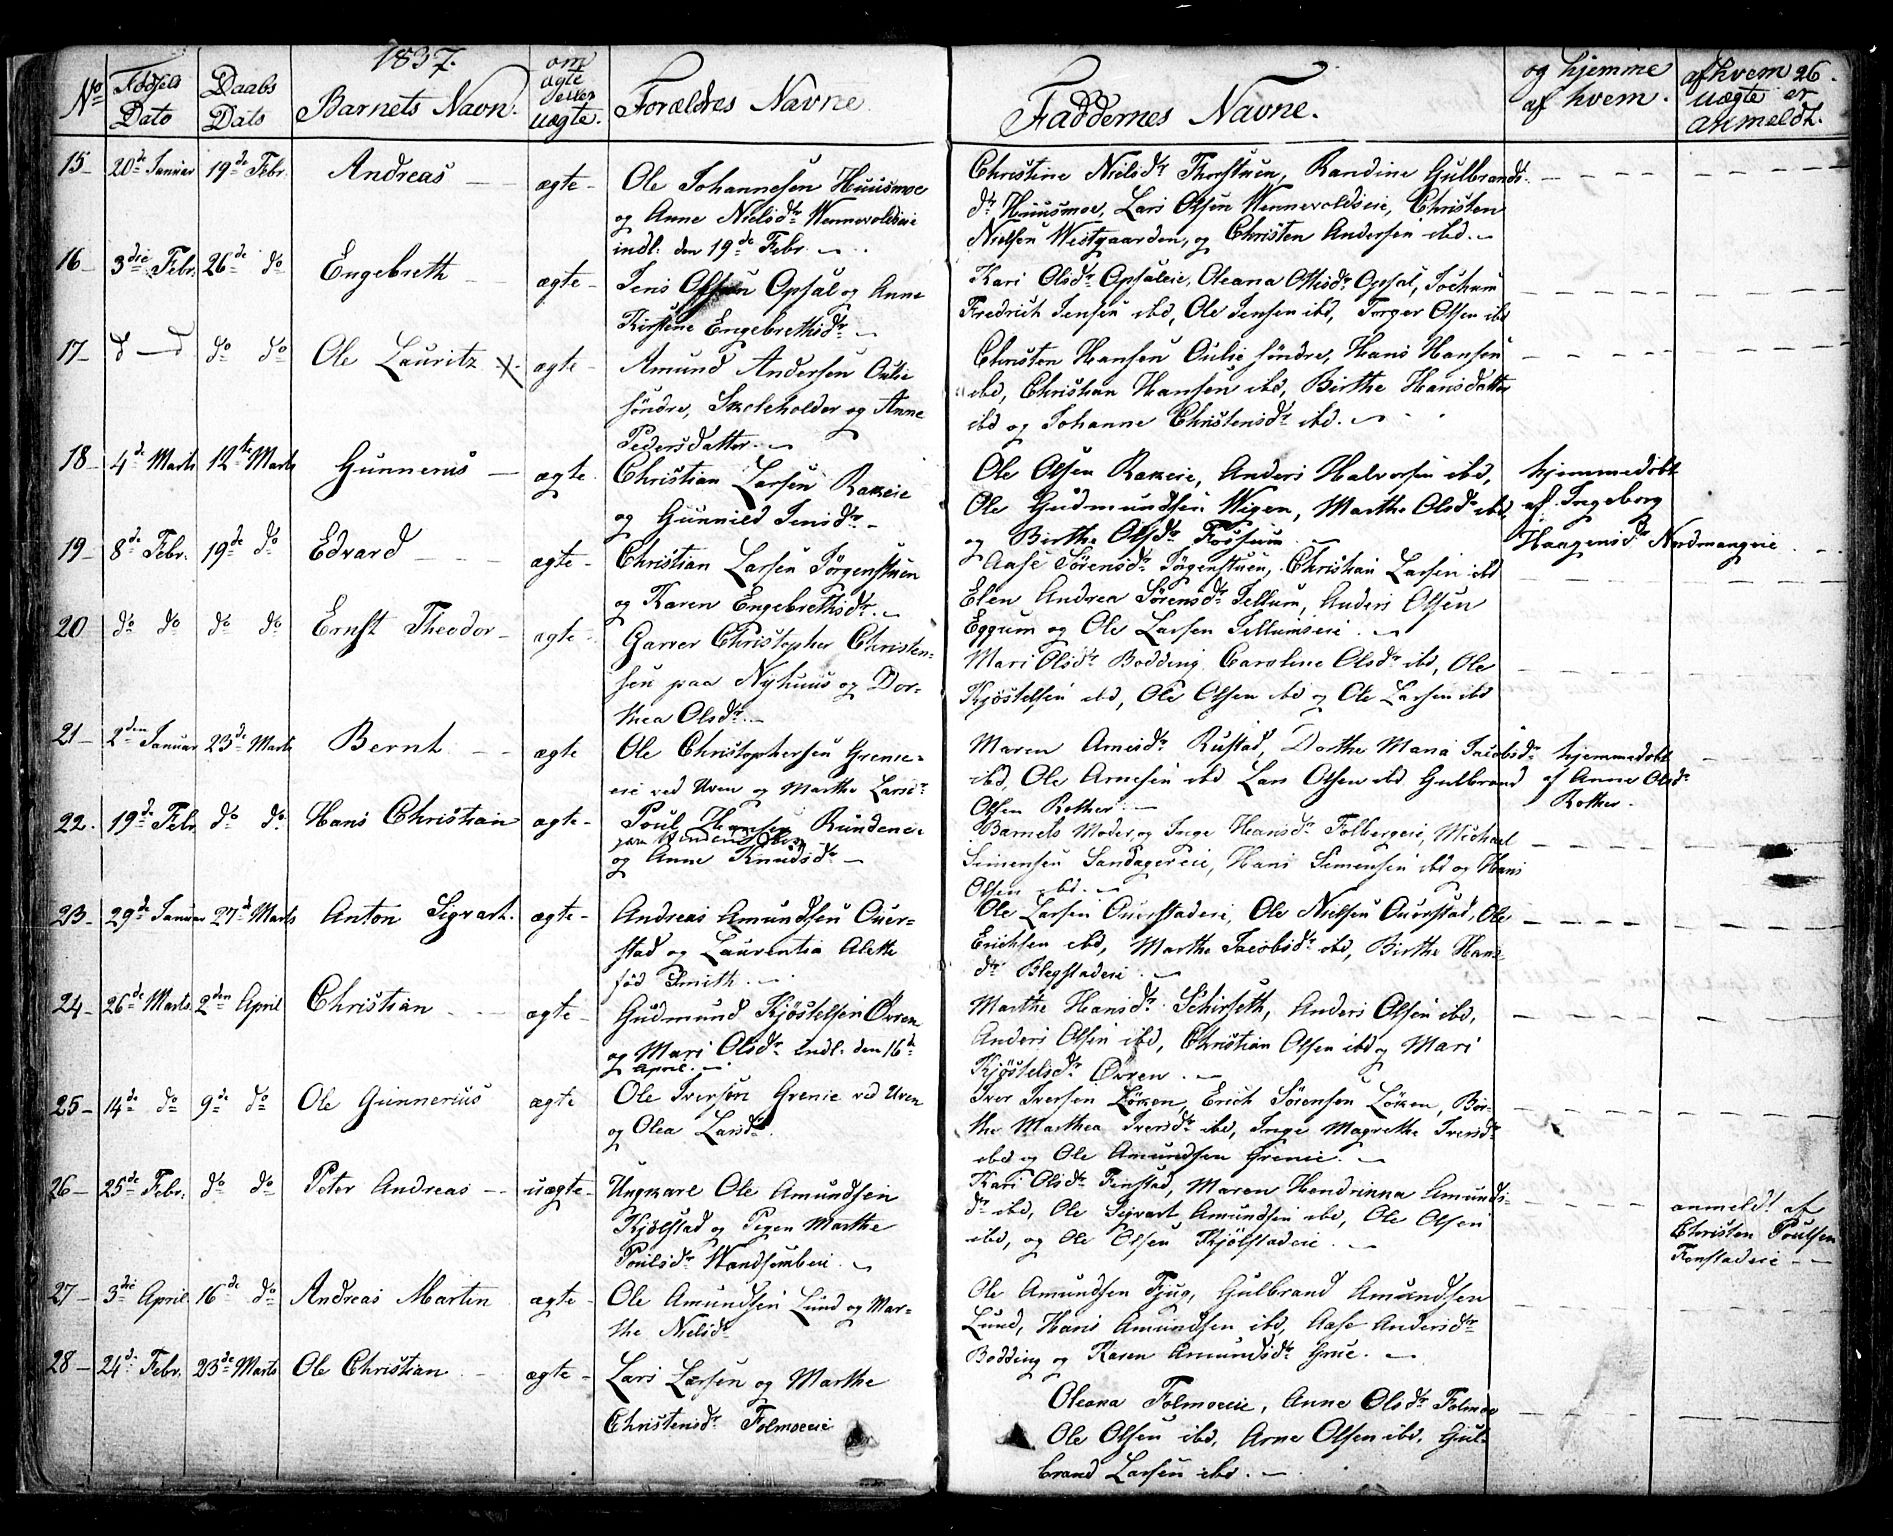 1837.
26.
No Fødsels Dato
Daabs Dato
Barnets Navn.
om ægte eller uægte.
Forældres Navne.
Faddernes Navne.
og hjemme af hvem.
af hvem uægte er anmeldt.
15 - 20de Januar 19de Febr. Andreas - ægte -
Ole Johannesen Huusmoe
og Anne Nielsdtr Wennevoldseie
indl. den 19de Febr.
Christine Nielsdtr Thorstuen, Randine Gulbrands
dtr Huusmoe, Lars Olsen Wennevoldseie, Christen
Nielsen Westgaarden, og Christen Andersen ibd.
16 - 3die Febr. 26de do Engebreth - ægte -
Jens Olsen Opsal og Anne
Kirstine Engebrethsdtr
Kari Olsdtr Opsaleie, Oleana Ottisdtr Opsal, Jochum
Fredrich Jensen ibd, Ole Jensen ibd, Torger Olsen ibd
17 - d - d do do Ole Lauritz X ægte -
Amund Andersen Oulie
søndre, Skoleholder og Anne
Pedersdatter.
Christen Hansen Oulie søndre, Hans Hansen
ibd, Christian Hansen ibd, Birthe Hansdatter
ibd og Johanne Christensdtr ibd.
18 - 4de Marts 12te Marts Gunnerus - ægte
Christian Larsen Rakeie
og Gunnild Jensdtr
Ole Olsen Rakeie, Anders Halvorsen ibd,
Ole Gudmundsen Wigen, Marthe Olsdtr ibd
og Birthe Olsdtr Fossum
hjemmedøbt
af Ingeborg
Haagensdtr Nordmangeie
19 - 8de Febr. 19de do Edvard - ægte -
Christian Larsen Jørgenstuen
og Karen Engebrethsdtr.
Aase Sørensdtr Jørgenstuen, Christian Larsen ibd
Elen Andrea Sørensdtr Tellum, Anders Olsen
Eggum og Ole Larsen Tellumseie.
20 do do do do Ernst Theodor - ægte -
Garver Christopher Christen-
sen paa Nyhuus og Dor-
thea Olsdtr.
Mari Olsdtr Bodding Caroline Olsdtr ibd, Ole
Kjøstelsen ibd, Ole Olsen ibd og Ole Larsen ibd
21 - 2den Januar 23de Marts Bernt - ægte
Ole Christophersen Grenie-
eie ved Uren og Marthe Larsdtr
Maren Arnesdtr Rustad, Dorthe Maria Jacobsdtr
ibd, Ole Arnesen ibd Lars Olsen ibd Gulbrand
Olsen Rother.
hjemmedøbt
af Anne Olsdtr
Rother.
22. 19de Febr do do Hans Christian ægte -
Poul Hansen Rundeneie
og Anne Knudsdtr -
Barnets Moder og Inge Hansdtr Folbergeie, Michael
Simensen Sandagereie, Hans Simensen ibd og Hans
Olsen ibd.
23 - 29de Januar 27de Marts Anton Sigvart. ægte -
Andreas Amundsen Ouer-
stad og Laurentia Alette
fød Smith.
Ole Larsen Ouerstadeie, Ole Nielsen Ouerstad, Ole
Erichsen ibd, Marthe Jacobsdtr ibd, Birthe Hans
dtr Blegstadeie.
24 - 26de Marts 2den April Christian - ægte -
Gudmund Kjøstelsen Øvren
og Mari Olsdtr indl. den 16de
April.
Marthe Hansdtr Schirseth, Anders Olsen ibd,
Anders Olsen ibd, Christian Olsen ibd og Mari
Kjøstelsdtr Øvren.
25 - 14de do 9de do Ole Gunnerius ægte
Ole Iversen Grenie ved Uren
og Olea Larsdtr.
Iver Iversen Løken, Erich Sørensen Løken, Bir-
the Marthea Iversdtr ibd, Inge Magrethe Iversdtr
ibd og Ole Amundsen Grenie.
26 - 25de Febr. do do Peter Andreas - uægte -
Ungkarl Ole Amundsen
Kjølstad og Pigen Marthe
Poulsdtr Wandsembeie.
Kari Olsdtr Fenstad, Maren Hendrinna Amunds-
dtr ibd, Ole Sigvart Amundsen ibd, Ole Olsen
ibd, og Ole Olsen Kjølstadeie.
anmeldt af
Christen Poulsen
Fenstadeie - -
27 - 3die April 16de do Andreas Martin ægte -
Ole Amundsen Lund og Mar-
the Nielsdtr
Ole Amundsen Fjug, Gulbrand Amundsen
Lund, Hans Amundsen ibd, Aase Andersdtr
Bodding og Karen Amundsdtr Grue.
28 - 24de Febr. 23de Marts Ole Christian - ægte -
Lars Larsen og Marthe
Christensdtr Folmoeeie
Oleana Folmoeeie, Anne Olsdtr Folmoe
Ole Olsen ibd, Arne Olsen ibd, Gul-
brand Larsen ibd.